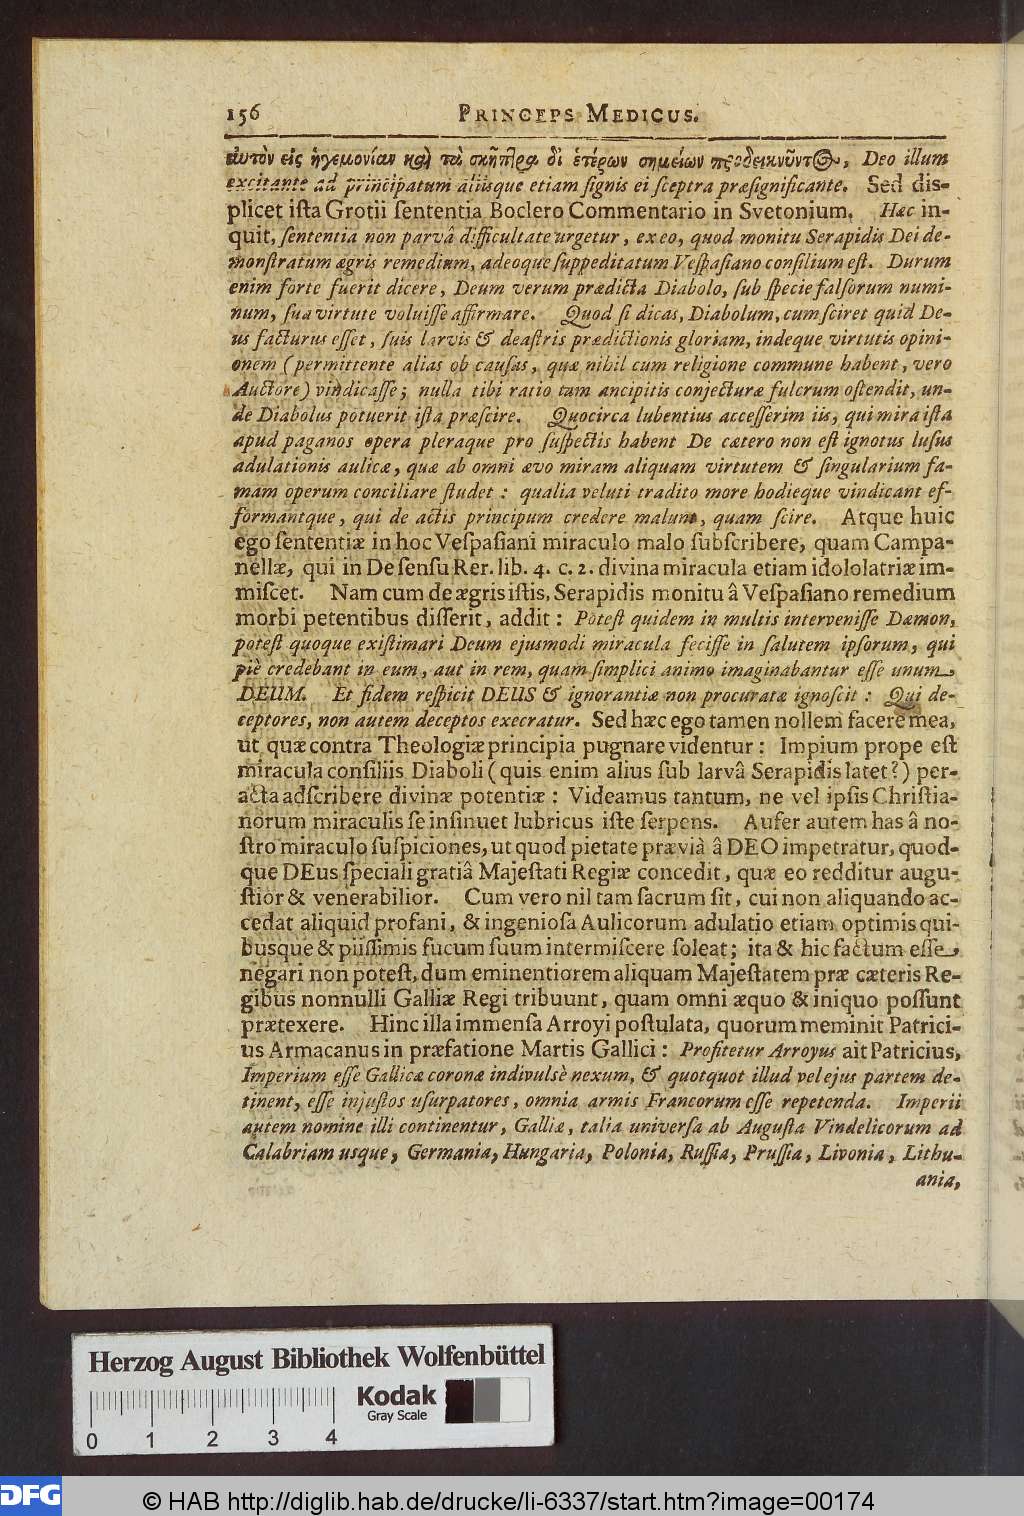 156 PRINCEPS MEDICUS.
αυτὸν εἰς ἡγεμονίαν καὶ τὰ σκῆπτρα δι ἑτέρων σημείων προδεικνῦντος, Deo illum
excitante ad principatum aliisque etiam ſignis ei ſceptra præſignificante. Sed diſ-
plicet iſta Grotii ſententia Boclero Commentario in Svetonium. Hæc in-
quit, ſententia non parvâ difficultate urgetur, ex eo, quod monitu Serapidis Dei de-
monſtratum ægris remedium, adeoque ſuppeditatum Veſpaſiano conſilium eſt. Durum
enim forte fuerit dicere, Deum verum prædicta Diabolo, ſub ſpecie falſorum numi-
num, ſua virtute voluiſſe affirmare. Quod ſi dicas, Diabolum, cum ſciret quid De-
us facturus eſſet, ſuis larvis & deaſtris prædictionis gloriam, indeque virtutis opini-
onem (permittente alias ob cauſas, quæ nihil cum religione commune habent, vero
Auctore) vindicaſſe; nulla tibi ratio tam ancipitis conjecturæ fulcrum oſtendit, un-
de Diabolus potuerit iſta præſcire. Quocirca lubentius acceſſerim iis, qui mira iſta
apud paganos opera pleraque pro ſuſpectis habent De cætero non eſt ignotus luſus
adulationis aulicæ, quæ ab omni ævo miram aliquam virtutem & ſingularium fa-
mam operum conciliare ſtudet : qualia veluti tradito more hodieque vindicant ef-
formantque, qui de actis principum credere malunt, quam ſcire. Atque huic
ego ſententiæ in hoc Veſpaſiani miraculo malo ſubſcribere, quam Campa-
nellæ, qui in De ſenſu Rer. lib. 4. c. 2. divina miracula etiam idololatriæ im-
miſcet. Nam cum de ægris iſtis, Serapidis monitu â Veſpaſiano remedium
morbi petentibus diſſerit, addit : Poteſt quidem in multis interveniſſe Dæmon,
poteſt quoque exiſtimari Deum ejusmodi miracula feciſſe in ſalutem ipſorum, qui
piè credebant in eum, aut in rem, quam ſimplici animo imaginabantur eſſe unum
DEUM. Et fidem reſpicit DEUS & ignorantiæ non procuratæ ignoſcit : Qui de-
ceptores, non autem deceptos execratur. Sed hæc ego tamen nollem facere mea,
ut quæ contra Theologiæ principia pugnare videntur : Impium prope eſt
miracula conſiliis Diaboli (quis enim alius ſub larvâ Serapidis latet?) per-
acta adſcribere divinæ potentiæ : Videamus tantum, ne vel ipſis Chriſtia-
norum miraculis ſe inſinuet lubricus iſte ſerpens. Aufer autem has â no-
ſtro miraculo ſuſpiciones, ut quod pietate præviâ â DEO impetratur, quod-
que DEus ſpeciali gratiâ Majeſtati Regiæ concedit, quæ eo redditur augu-
ſtior & venerabilior. Cum vero nil tam ſacrum ſit, cui non aliquando ac-
cedat aliquid profani, & ingenioſa Aulicorum adulatio etiam optimis qui-
busque & piiſſimis fucum ſuum intermiſcere ſoleat; ita & hic factum eſſe,
negari non poteſt, dum eminentiorem aliquam Majeſtatem præ cæteris Re-
gibus nonnulli Galliæ Regi tribuunt, quam omni æquo & iniquo poſſunt
prætexere. Hinc illa immenſa Arroyi poſtulata, quorum meminit Patrici-
us Armacanus in præfatione Martis Gallici : Profitetur Arroyus ait Patricius,
Imperium eſſe Gallicæ coronæ indivulsè nexum, & quotquot illud vel ejus partem de-
tinent, eſſe injuſtos uſurpatores, omnia armis Francorum eſſe repetenda. Imperii
autem nomine illi continentur, Galliæ, Italia univerſa ab Auguſta Vindelicorum ad
Calabriam usque, Germania, Hungaria, Polonia, Ruſſia, Pruſſia, Livonia, Lithu-
ania,
Herzog August Bibliothek Wolfenbüttel
Kodak
Gray Scale
0 1 2 3 4
DFG © HAB http://diglib.hab.de/drucke/li-6337/start.htm?image=00174